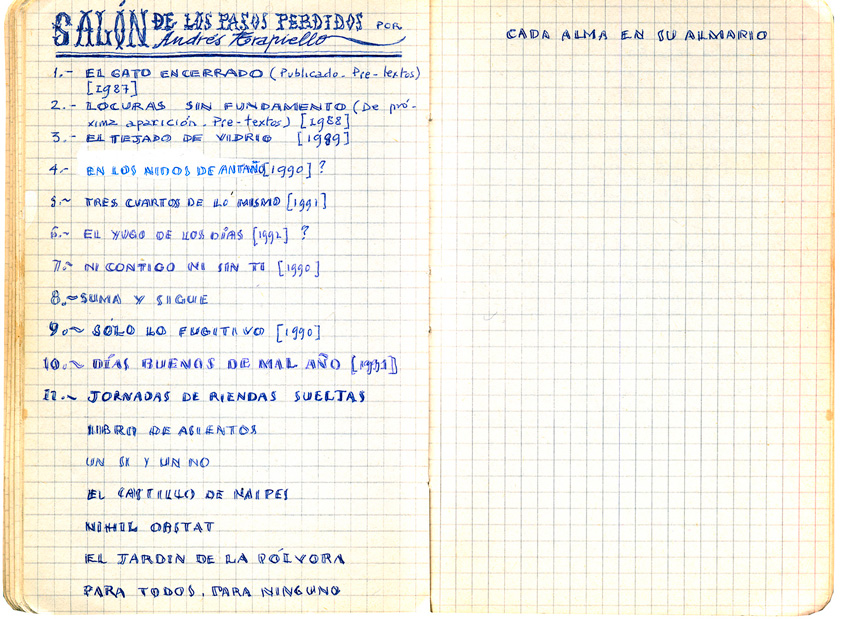 SALÓN DE LOS PASOS PERDIDOS POR
Andrés Trapiello
1.- EL GATO ENCERRADO (Publicado - Pre-textos)
[1987]
2.- LOCURAS SIN FUNDAMENTO (De pró-
xima aparición. Pre-textos) [1988]
3.- EL TEJADO DE VIDRIO [1989]
4.- EN LOS NIDOS DE ANTAÑO [1990] ?
5.~ TRES CUARTOS DE LO MISMO [1991]
6.~ EL YUGO DE LOS DÍAS [1992] ?
7.~ NI CONTIGO NI SIN TI [1990]
8.~ SUMA Y SIGUE
9.~ SÓLO LO FUGITIVO [1990]
10.~ DÍAS BUENOS DE MAL AÑO [1991]
11.~ JORNADAS DE RIENDAS SUELTAS
LIBRO DE ASIENTOS
UN SI Y UN NO
EL CASTILLO DE NAIPES
NIHIL OBSTAT
EL JARDIN DE LA PÓLVORA
PARA TODOS, PARA NINGUNO
CADA ALMA EN SU ALMARIO